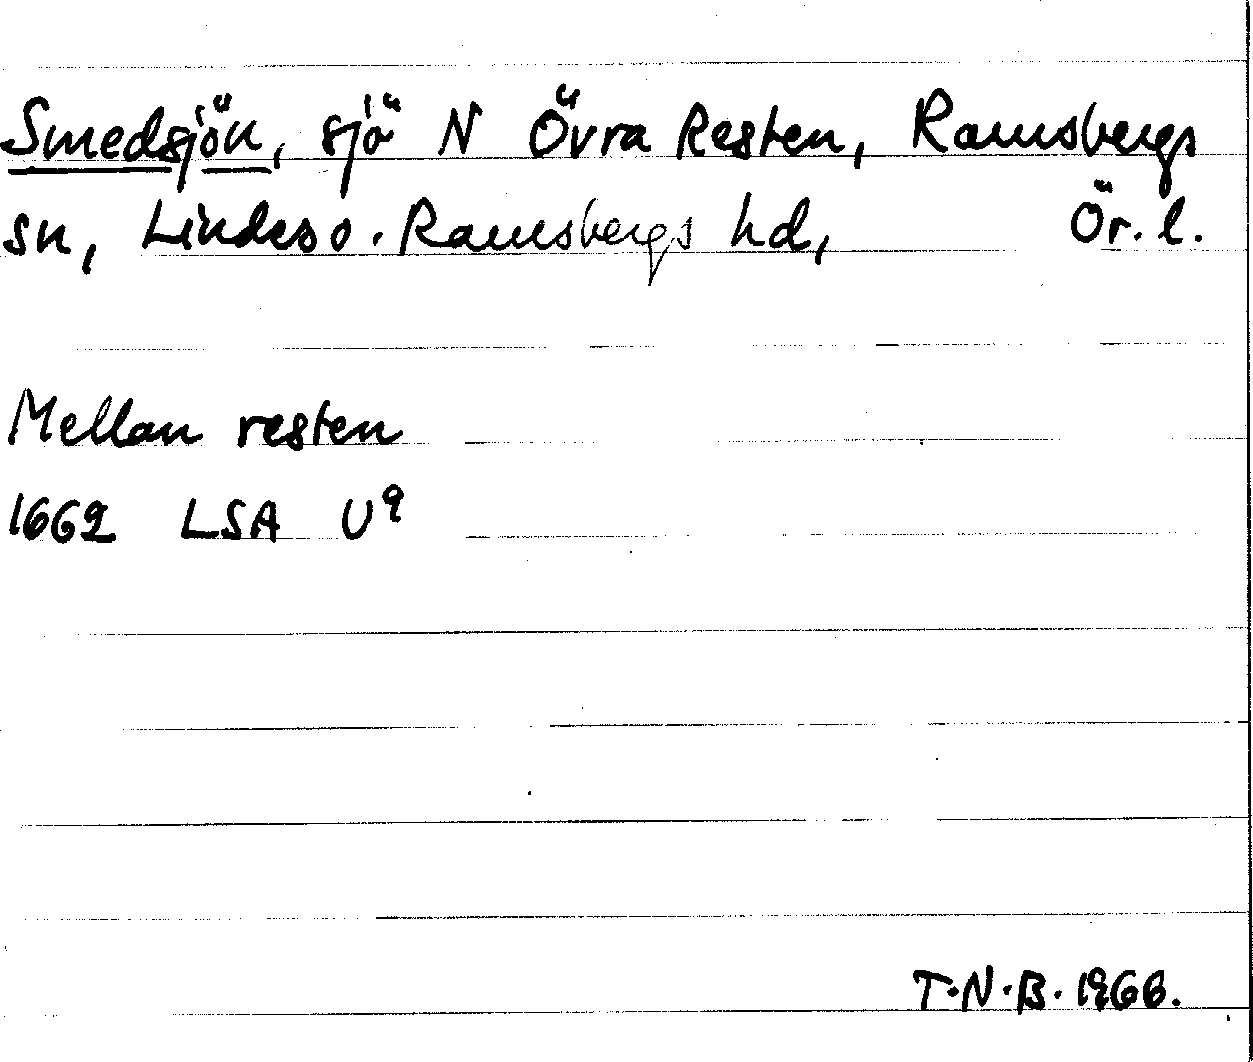 Smedsjön, sjö N Övra Resten, Ramsbergs
sn, Lindes o. Ramsbergs hd, Ör. l.
Mellan resten
1662 LSA U9
T.N.B. 1966.